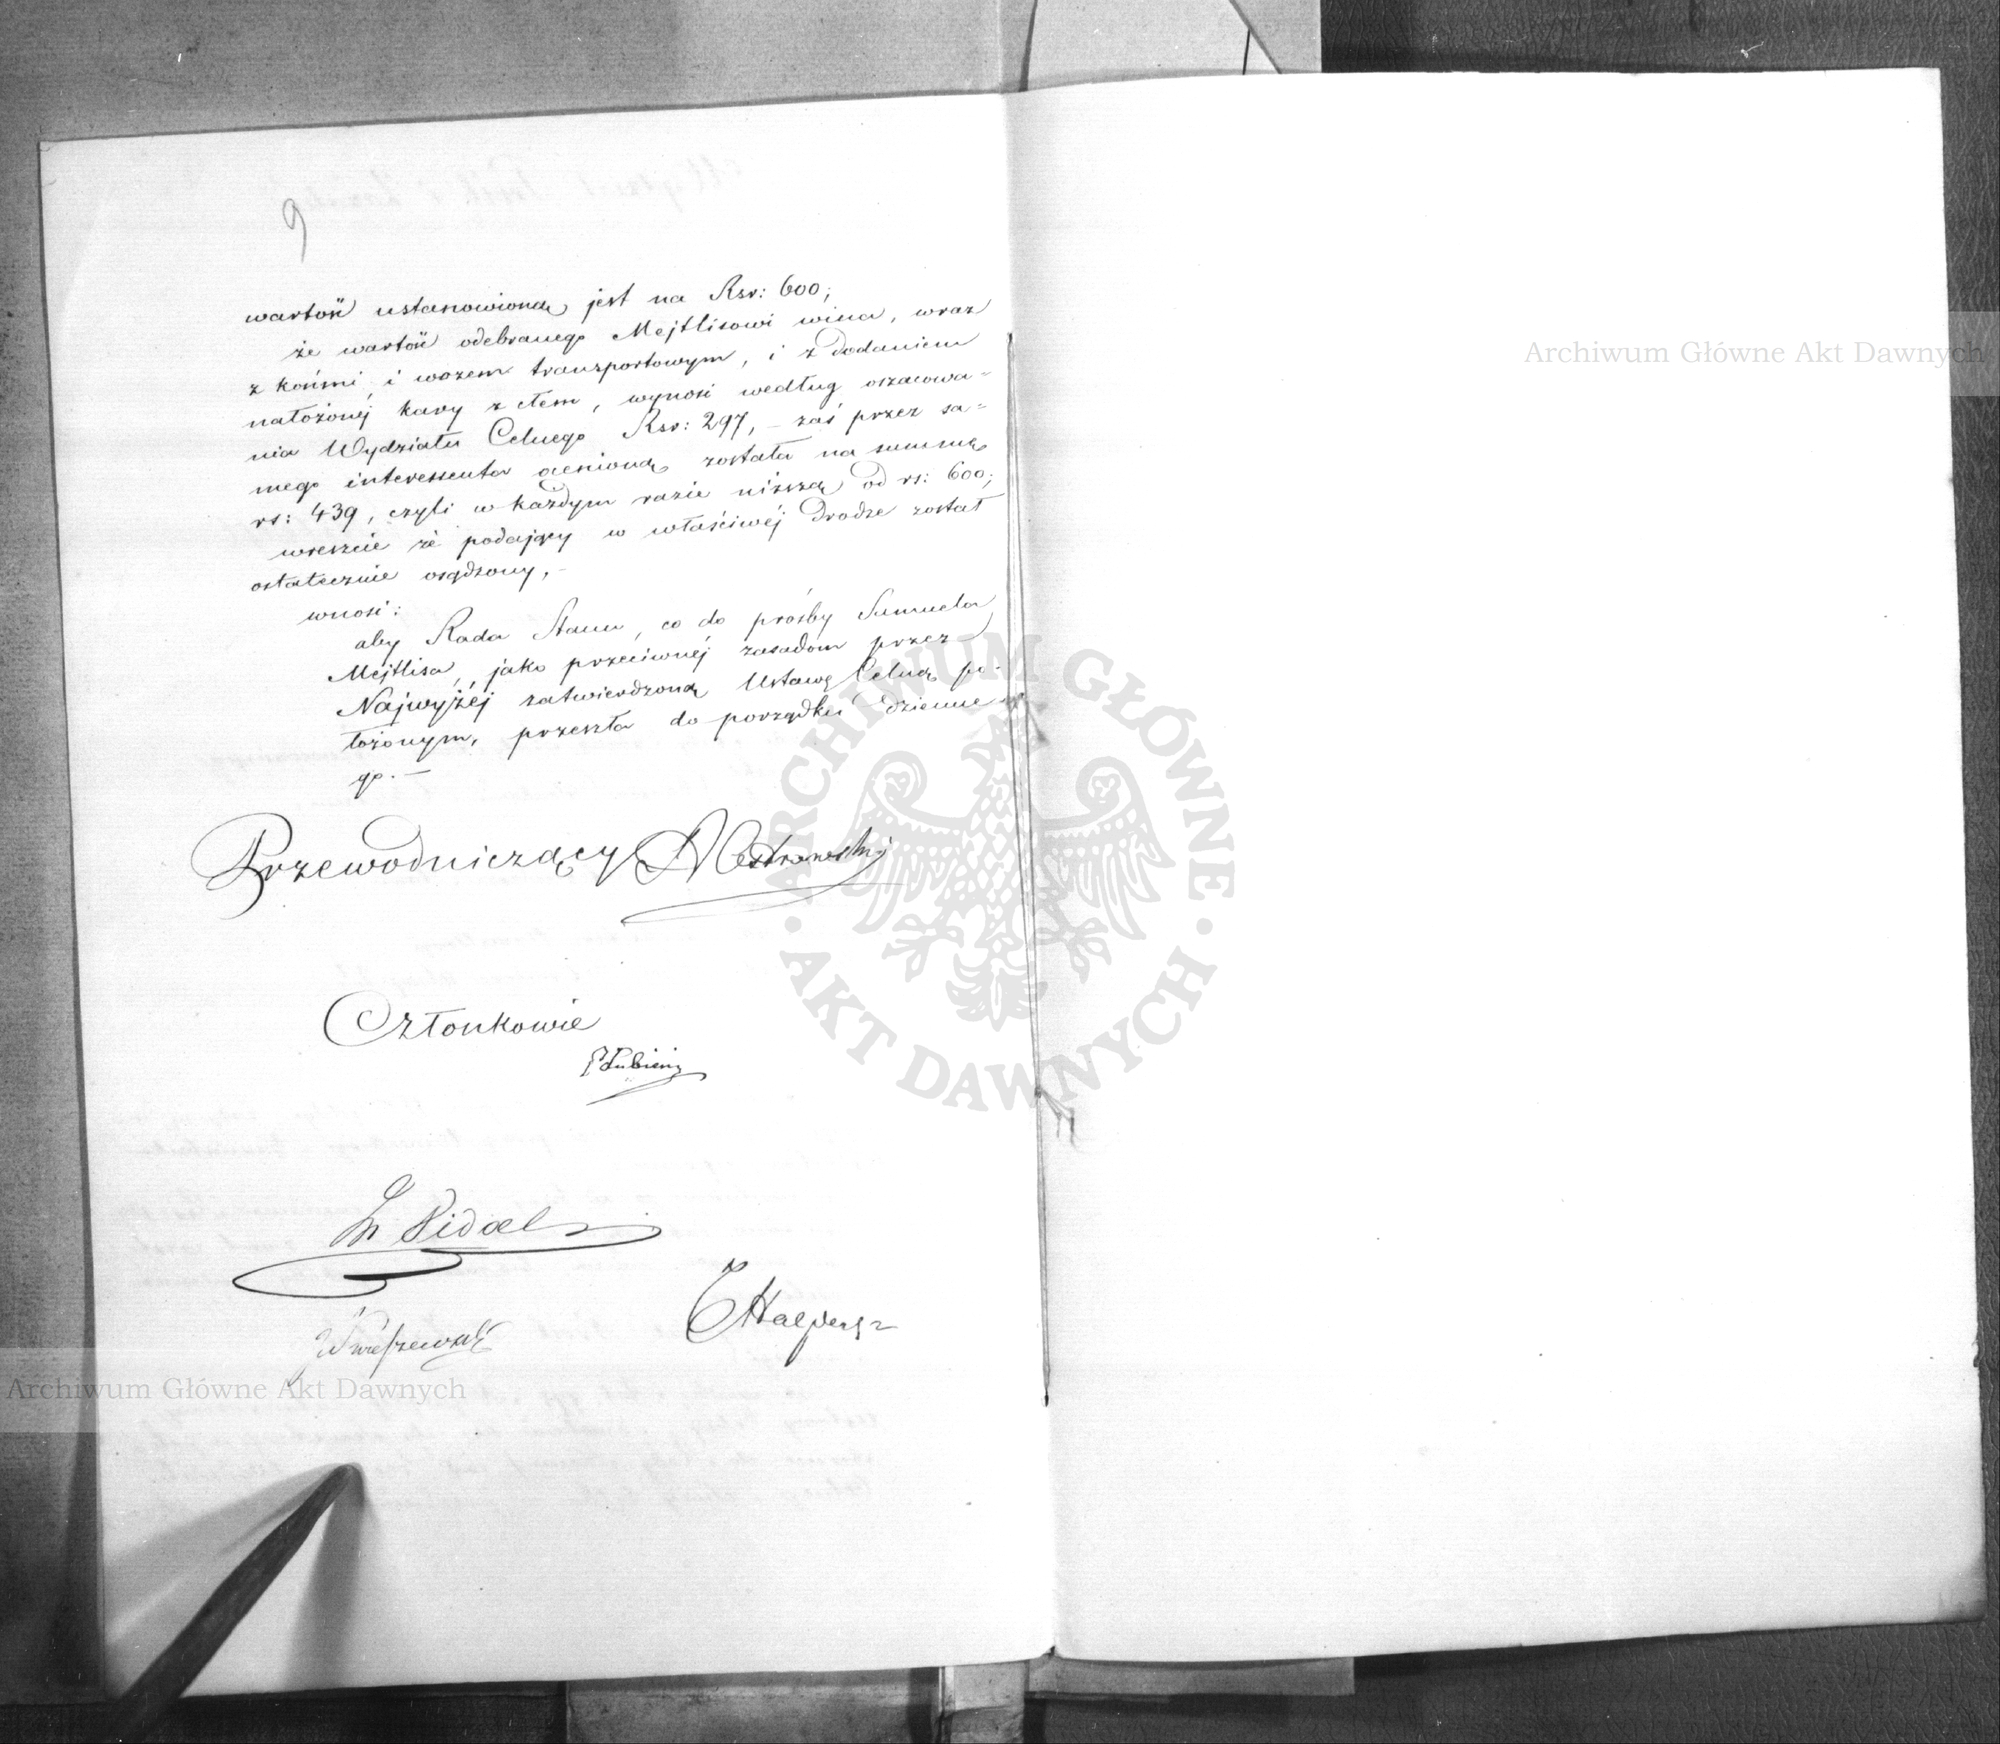 9
wartość ustanowioną jest na Rsr: 600;
że wartość odebranego Mejtlisowi wina, wraz
z końmi, i wozem transportowym, i z dodaniem
nałożonej kary z cłem, wynosi według oszacowa=
nia Wydziału Celnego Rsr: 297, – zaś przez sa=
mego interessenta cenioną została na summę
rs: 439, czyli w każdym razie niższą od rs: 600;
wreszcie że podający w właściwéj drodze został
ostatecznie osądzony, –
wnosi:
aby Rada Stanu, co do prośby Samuela
Mejtlisa, jako przeciwnéj zasadom przez
Najwyżéj zatwierdzoną Ustawę Celną po-
łożonym, przeszła do porządku dzienne
go. –
Przewodniczący A Ostrowski
Członkowie
P Łubieńs
Vidal
Halpert
Archiwum Główne Akt Dawnych
Archiwum Główne Akt Dawnych
ARCHIWUM GŁÓWNE · AKT DAWNYCH ·